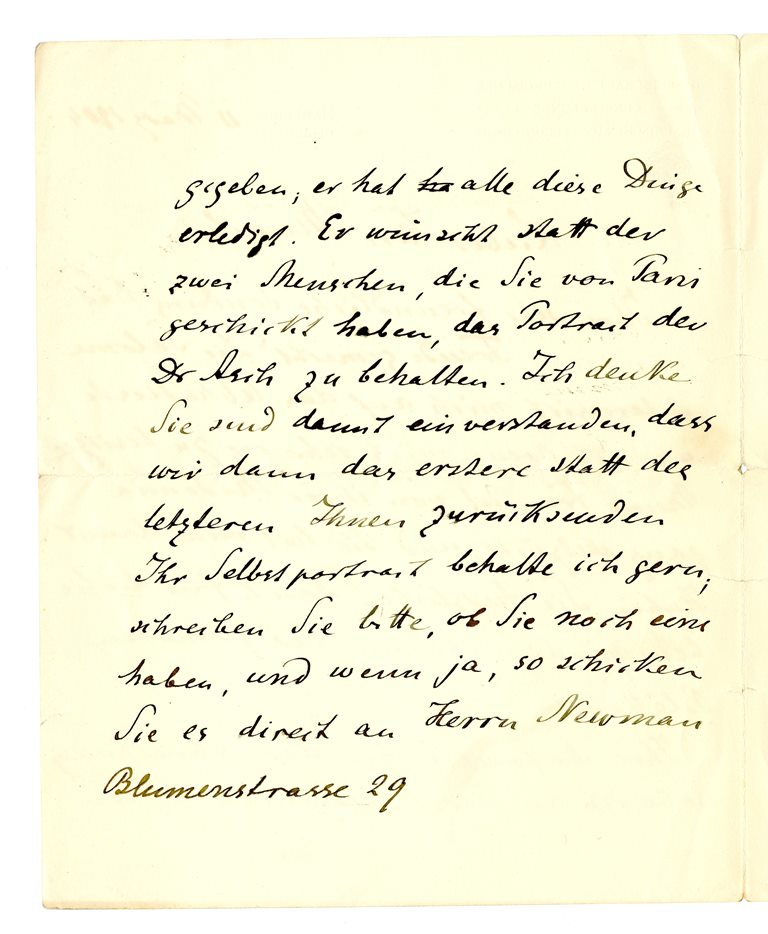 gegeben, er hat ha alle diese Dinge
erledigt. Er wünscht statt der
zwei Menschen, die Sie von Paris
geschickt haben, das Portrait des
Dr Asch zu behalten. Ich denke
Sie sind damit einverstanden, dass
wir dann das erstere statt des
letzteren Ihnen zurücksenden
Ihr Selbstportrait behalte ich gern,
schreiben Sie bitte, ob Sie noch eins
haben, und wenn ja, so schicken
Sie es direct an Herrn Newman
Blumenstrasse 29